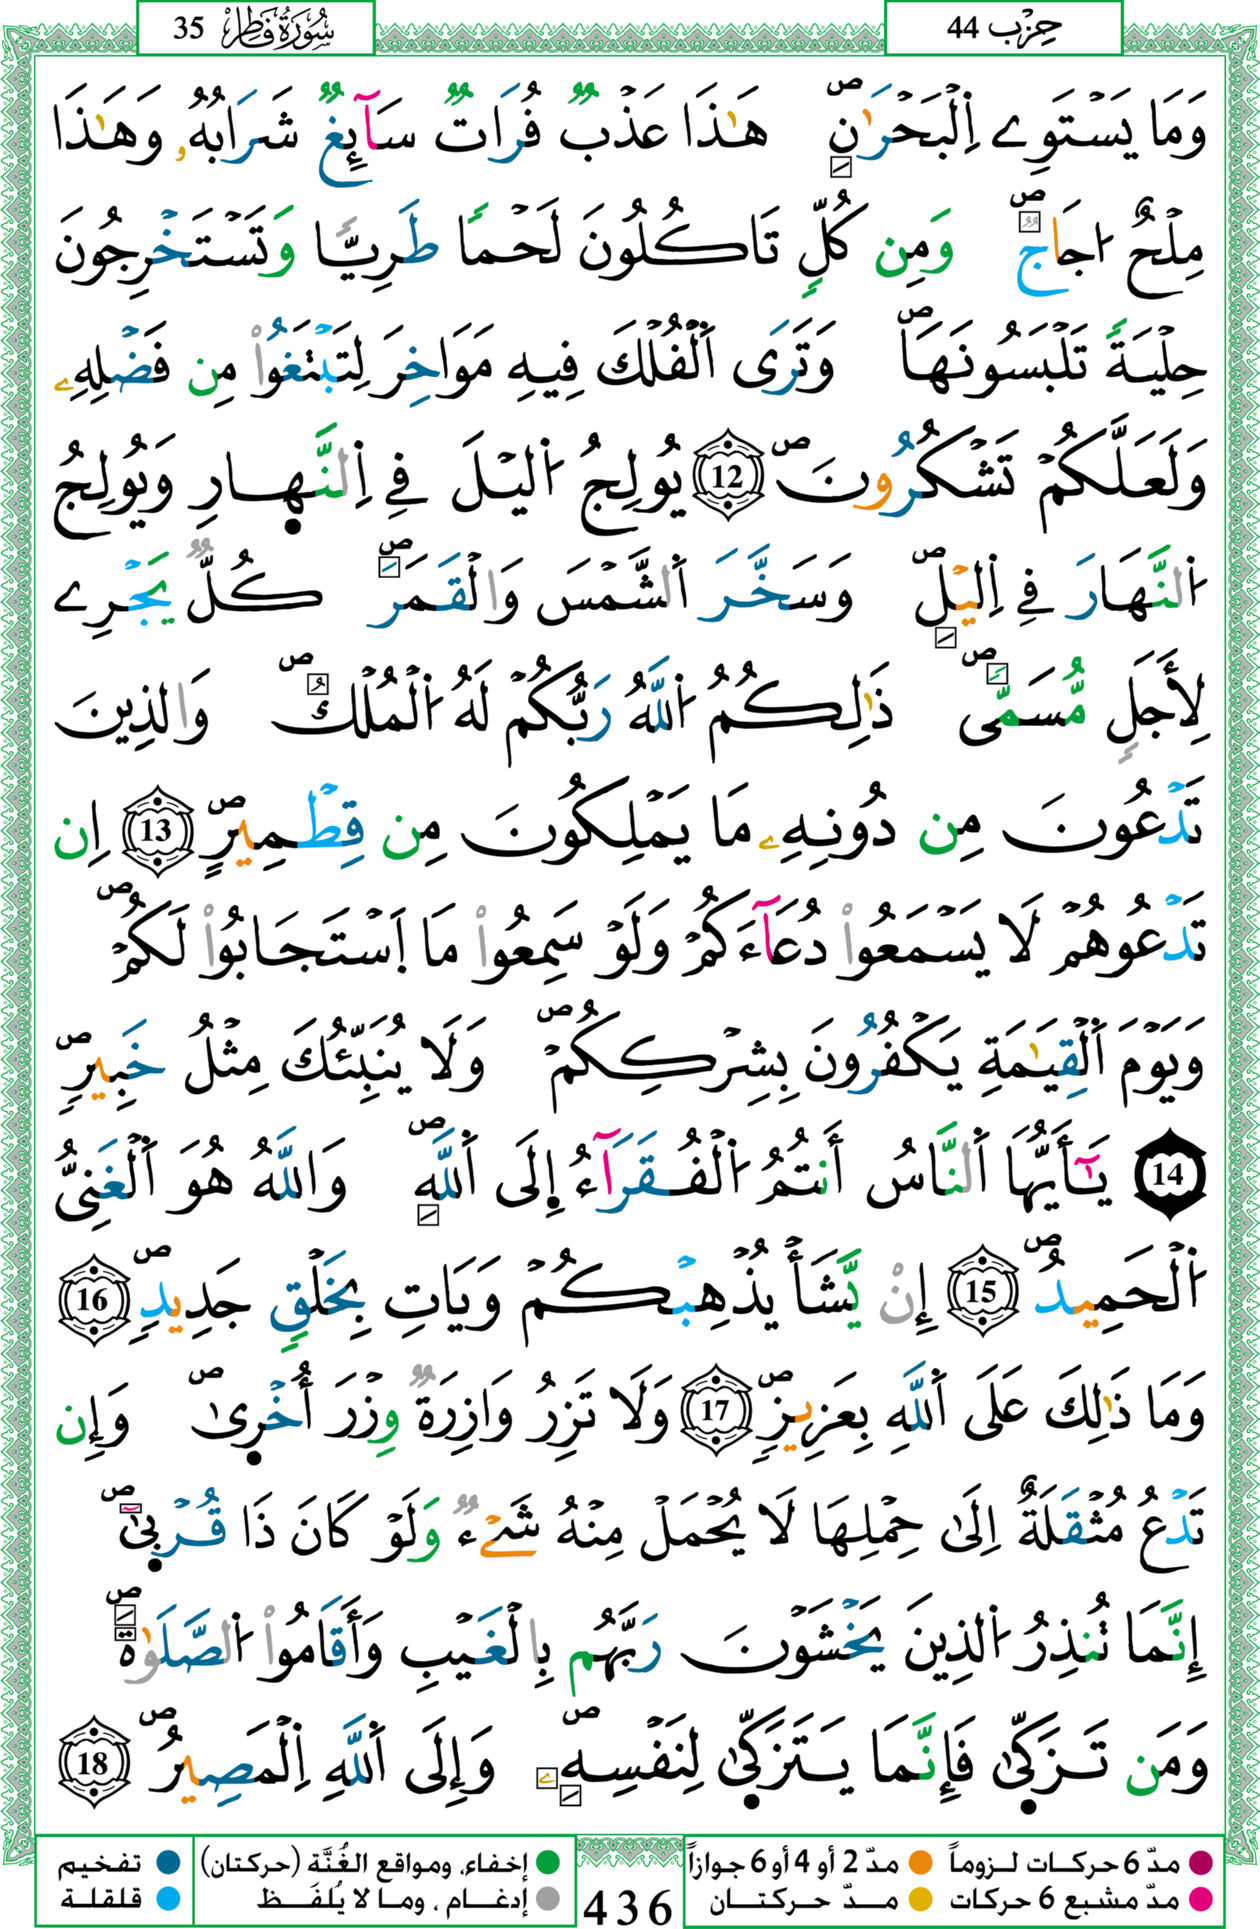 حزب 44
سورة فاطر 35
وَمَا يَسْتَوِے اِ۬لْبَحْرَٰنِۖ هَٰذَا عَذْبٞ فُرَاتٞ سَآئِغٞ شَرَابُهُۥ وَهَٰذَا
مِلْحٌ ا۟جَاجٞۖ وَمِن كُلّٖ تَاكُلُونَ لَحْماٗ طَرِيّاٗ وَتَسْتَخْرِجُونَ
حِلْيَةٗ تَلْبَسُونَهَاۖ وَتَرَى اَ۬لْفُلْكَ فِيهِ مَوَاخِرَ لِتَبْتَغُواْ مِن فَضْلِهِۦ
وَلَعَلَّكُمْ تَشْكُرُونَۖ 12 يُولِجُ اُ۬ليْلَ فِے اِ۬لنَّهارِ وَيُولِجُ
اُ۬لنَّهَارَ فِے اِ۬ليْلِۖ وَسَخَّرَ اَ۬لشَّمْسَ وَالْقَمَرَۖ كُلّٞ يَجْرِے
لِأَجَلٖ مُّسَمّىٗۖ ذَٰلِكُمُ اُ۬للَّهُ رَبُّكُمْ لَهُ اُ۬لْمُلْكُۖ وَالذِينَ
تَدْعُونَ مِن دُونِهِۦ مَا يَمْلِكُونَ مِن قِطْمِيرٍۖ 13 اِن
تَدْعُوهُمْ لَا يَسْمَعُواْ دُعَآءَكُمْ وَلَوْ سَمِعُواْ مَا اَ۪سْتَجَابُواْ لَكُمْۖ
وَيَوْمَ اَ۬لْقِيَٰمَةِ يَكْفُرُونَ بِشِرْكِكُمْۖ وَلَا يُنَبِّئُكَ مِثْلُ خَبِيرٖۖ
14 يَٰٓأَيُّهَا اَ۬لنَّاسُ أَنتُمُ اُ۬لْفُقَرَآءُ إِلَى اَ۬للَّهِۖ وَاللَّهُ هُوَ اَ۬لْغَنِيُّ
اُ۬لْحَمِيدُۖ 15 إِنْ يَّشَأْ يُذْهِبْكُمْ وَيَاتِ بِخَلْقٖ جَدِيدٖۖ 16
وَمَا ذَٰلِكَ عَلَى اَ۬للَّهِ بِعَزِيزٖۖ 17 وَلَا تَزِرُ وَازِرَةٞ وِزْرَ أُخْرٜىٰۖ وَإِن
تَدْعُ مُثْقَلَةٌ اِلَىٰ حِمْلِهَا لَا يُحْمَلْ مِنْهُ شَےْءٞ وَلَوْ كَانَ ذَا قُرْبٜىٰٓۖ
إِنَّمَا تُنذِرُ اُ۬لذِينَ يَخْشَوْنَ رَبَّهُم بِالْغَيْبِ وَأَقَامُواْ اُ۬لصَّلَوٰةَۖ
وَمَن تَزَكّٜىٰ فَإِنَّمَا يَتَزَكّٜىٰ لِنَفْسِهِۦۖ وَإِلَى اَ۬للَّهِ اِ۬لْمَصِيرُۖ 18
مدّ 6 حركات لـزوماً
مدّ 2 أو 4 أو 6 جوازاً
مدّ مشبع 6 حركات
مـدّ حـركتـان
436
إخفاء، ومواقع الغُنَّة (حركتان)
إدغـام ، ومـا لا يُـلفَـظ
تفخيم
قلقلة